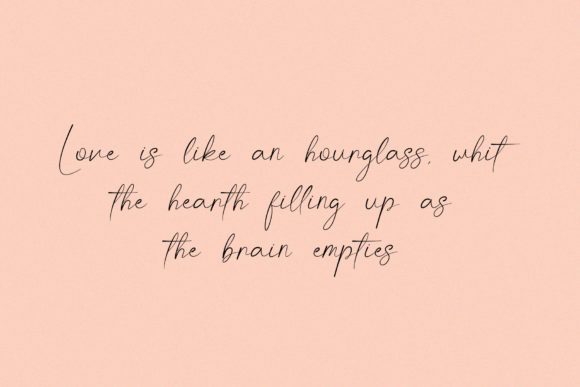 Love is like an hourglass, whit
the hearth filling up as
the brain empties